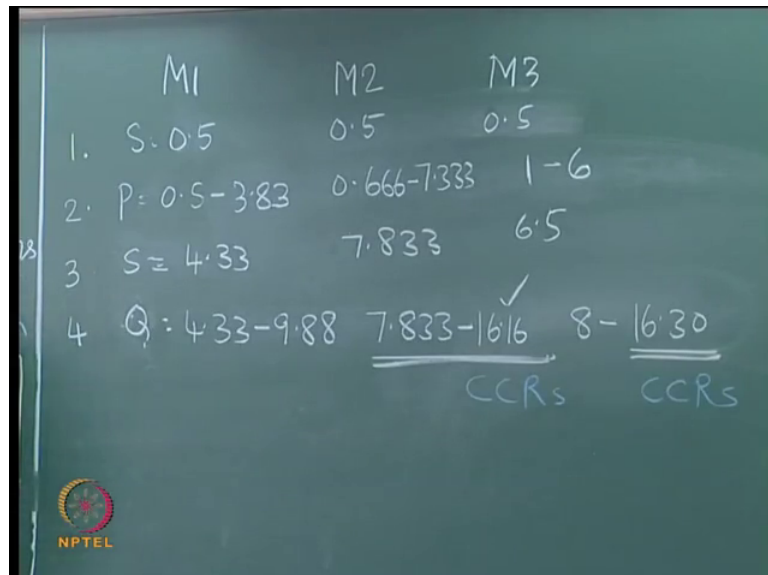 M1 M2 M3
1. S = 0.5 0.5 0.5
2. P = 0.5 - 3.83 0.666 - 7.333 1 - 6
3 S = 4.33 7.833 6.5
4 Q = 4.33 - 9.88 7.833 - 16.16 ✓ 8 - 16.30
CCRs CCRs
NPTEL